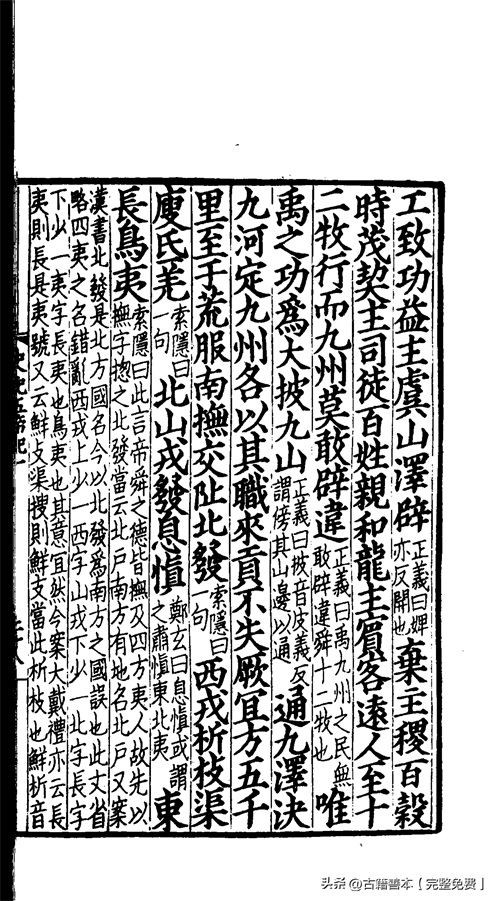 工致功益主虞山澤辟正義曰婢亦反開也棄主稷百穀
時茂契主司徒百姓親和龍主賔客遠人至十
二牧行而九州莫敢辟違正義曰禹九州之民無敢辟違舜十二牧也唯
禹之功爲大披九山正義曰披音皮義反謂傍其山邊以通通九澤決
九河定九州各以其職來貢不失厥宜方五千
里至于荒服南撫交阯北發索隱曰一句西戎析枝渠
廋氏羌索隱曰一句北山戎發息慎鄭玄曰息慎或謂之肅慎東北夷東
長鳥夷索隱曰此言帝舜之德皆撫及四方夷人故先以撫字揔之北發當云北戶南方有地名北戶又案
漢書北發是北方國名今以北發爲南方之國誤也此文省
略四夷之名錯亂西戎上少一西字山戎下少一北字長字
下少一夷字長夷也鳥夷也其意宜然今案大戴禮亦云長
夷則長是夷號又云鮮支渠搜則鮮支當此析枝也鮮析音
頭条@古籍善本【完整免费】